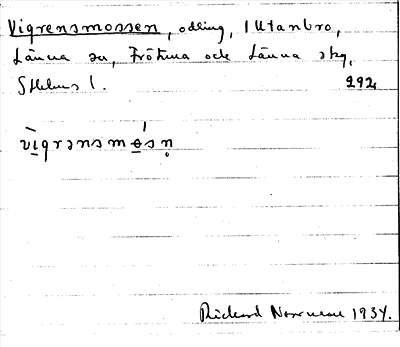 Vigrensmossen, odling, 1 Utanbro,
Länna sn, Frötuna och Länna skg,
Sthlms l. 292
vìgrənsmósn̥
Rickard Norrman 1934.